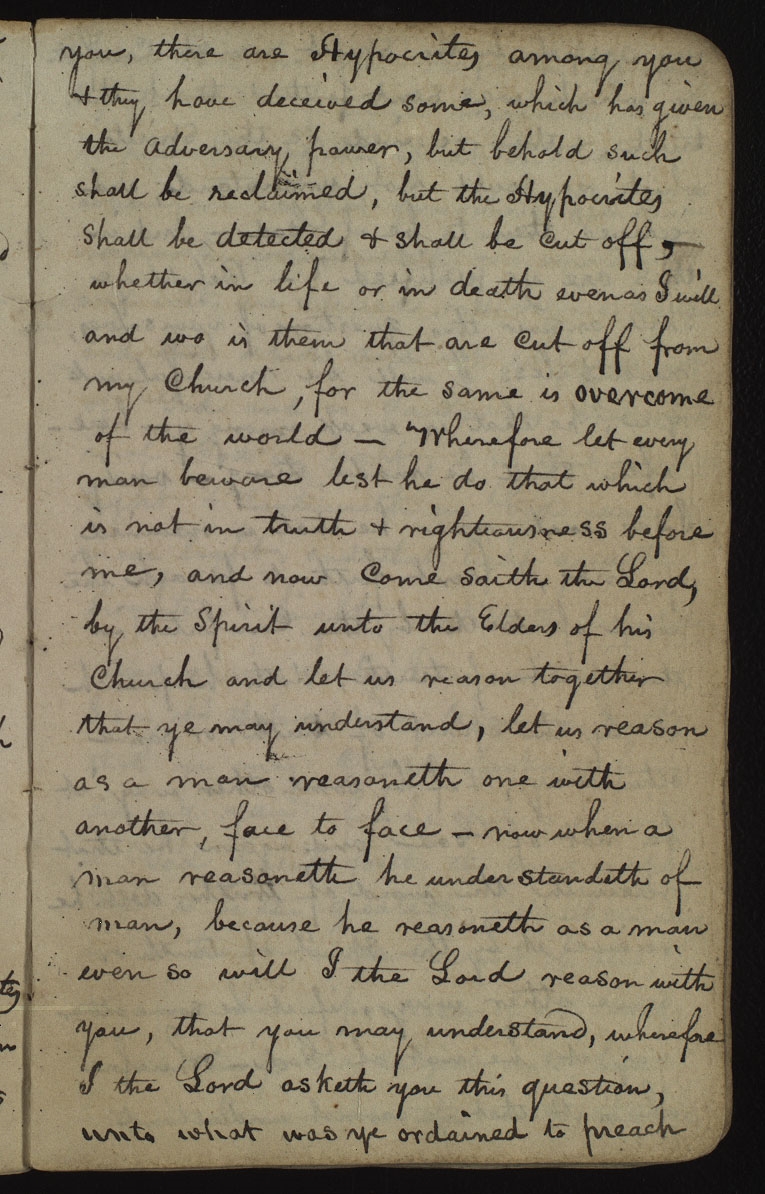 you, there are Hypocrites among you
& they have deceived some, which has given
the adversary power, but behold such
shall be reclaimed, but the Hypocrites
shall be detected & shall be cut off,
whether in life or in death even as I will
and wo is them that are cut off from
my Church, for the same is overcome
of the world — Wherefore let every
man beware lest he do that which
is not in truth & righteousness before
me, and now Come saith the Lord,
by the Spirit unto the Elders of his
Church and let us reason together
that ye may understand, let us reason
as a man reasoneth one with
another, face to face — now when a
man reasoneth he understandeth of
man, because he reasoneth as a man
even so will I the Lord reason with
you, that you may understand, wherefore
I the Lord asketh you this question,
unto what was ye ordained to preach